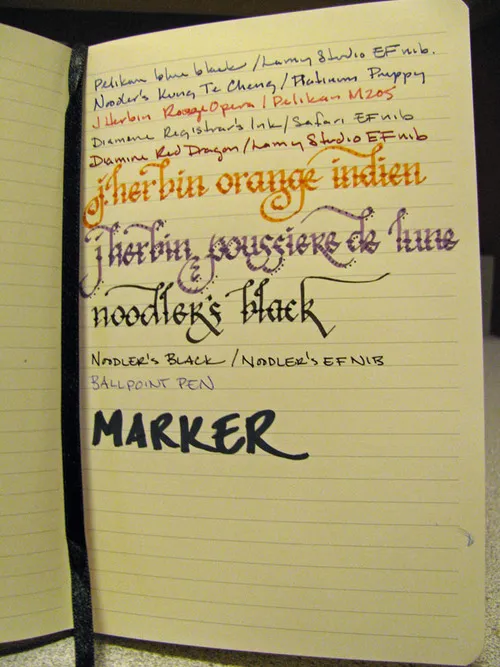 Pelikan blue black / Lamy Studio EF nib.
Noodler's Kung Te Cheng / Platinum Preppy
J Herbin Rouge Opera / Pelikan M205
Diamine Registrar's Ink / Safari EF nib
Diamine Red Dragon / Lamy Studio EF nib
j.herbin orange indien
j.herbin poussiere de lune
noodler's black
NOODLER'S BLACK / NOODLER'S EF NIB
BALLPOINT PEN
MARKER